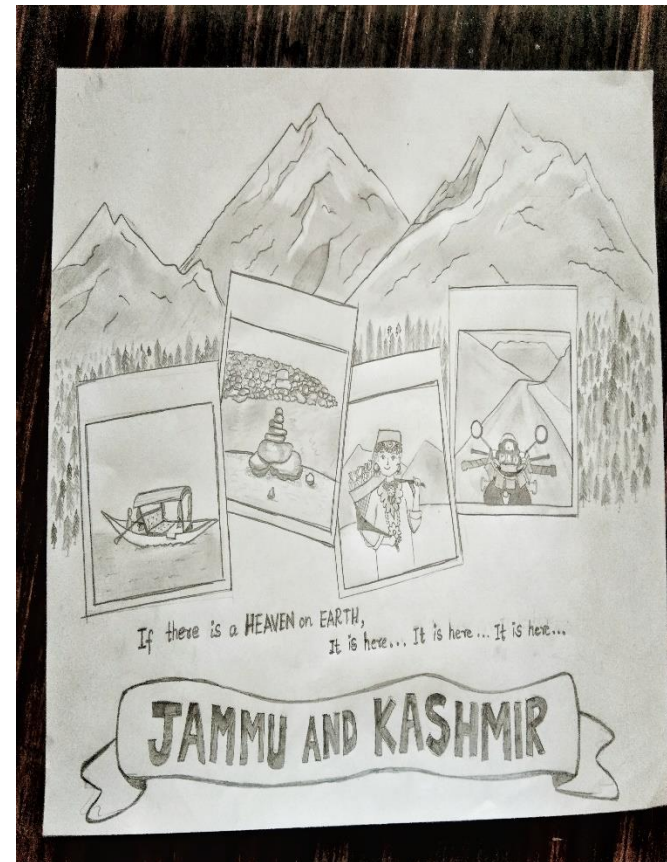 If there is a HEAVEN on EARTH,
It is here... It is here... It is here...
JAMMU AND KASHMIR